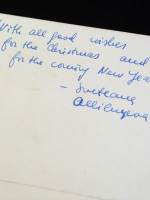 With all good wishes
for the Christmas and
for the coming New Year
— Svetlana
Alliluyeva